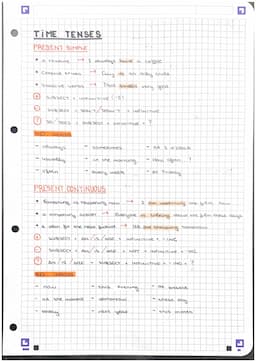 TIME TENSES
PRESENT SIMPLE
• a routine → I always have a coffee
+ SUBJECT + INFINITIVE (-S)
- SUBJECT + DON'T / DOESN'T + INFINITIVE
? DO / DOES + SUBJECT + INFINITIVE + ?
- always - sometimes
- usually - in the morning - how often..?
- often - every week - on Friday
PRESENT CONTINUOUS
• Something is happening now → I am
• a temporary action → Everyone is talking about
+ SUBJECT + AM / IS / ARE + INFINITIVE + -ING
- SUBJECT + AM / IS / ARE + NOT + INFINITIVE + -ING
? AM / IS / ARE + SUBJECT + INFINITIVE + -ING + ?
- now - this evening - at present
- at the moment - tomorrow - these days
- today - next year - this month